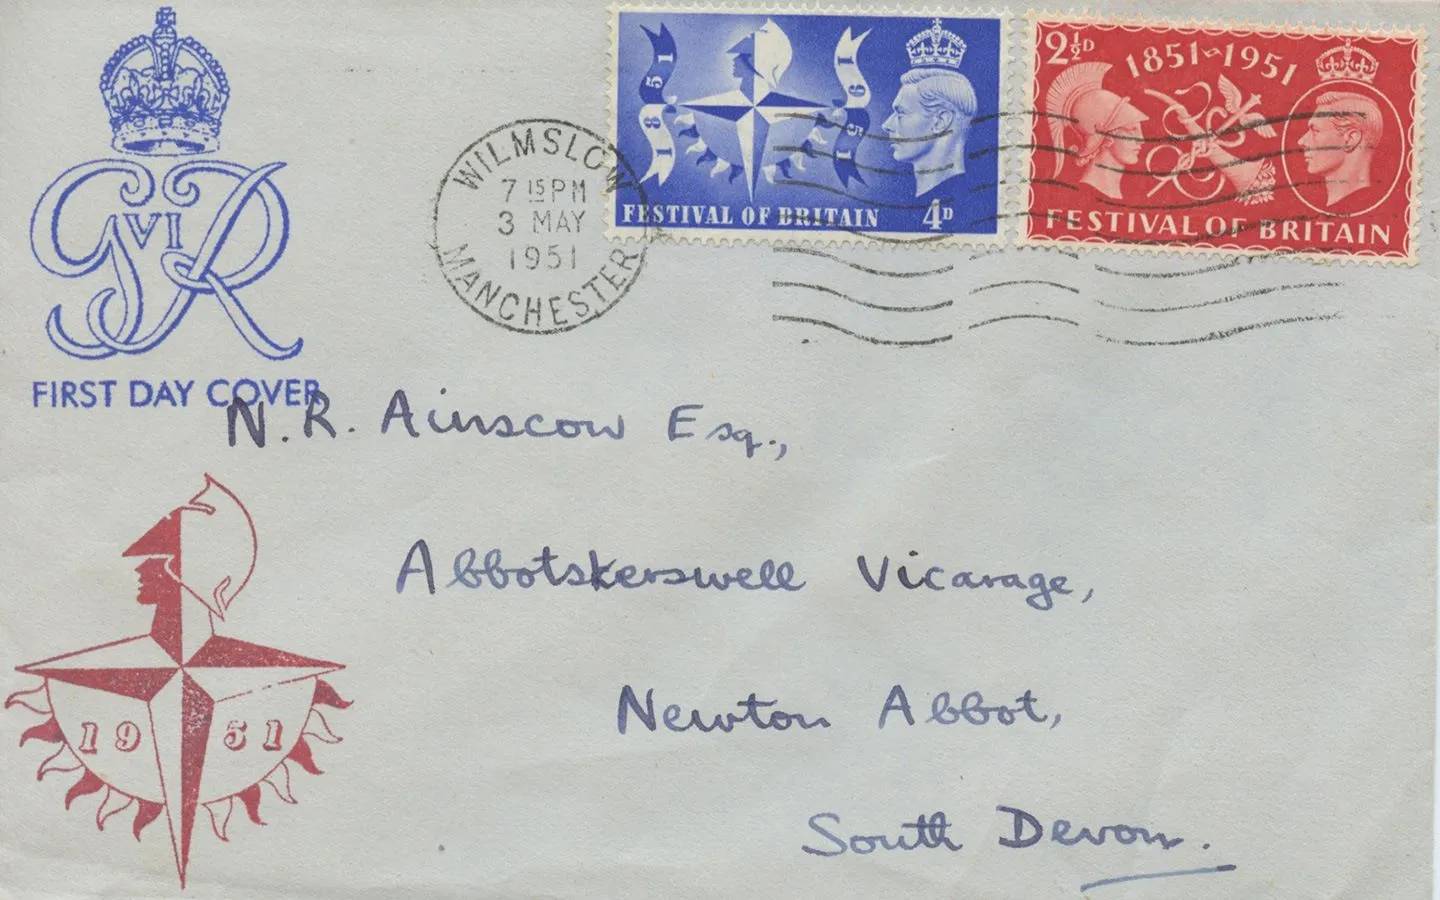 GVIR
FIRST DAY COVER
WILMSLOW
7 15 PM
3 MAY
1951
MANCHESTER
1851
1951
FESTIVAL OF BRITAIN
4D
2½D
1851-1951
FESTIVAL OF BRITAIN
N. R. Ainscow Esq.,
Abbotskerswell Vicarage,
Newton Abbot,
South Devon.
1951